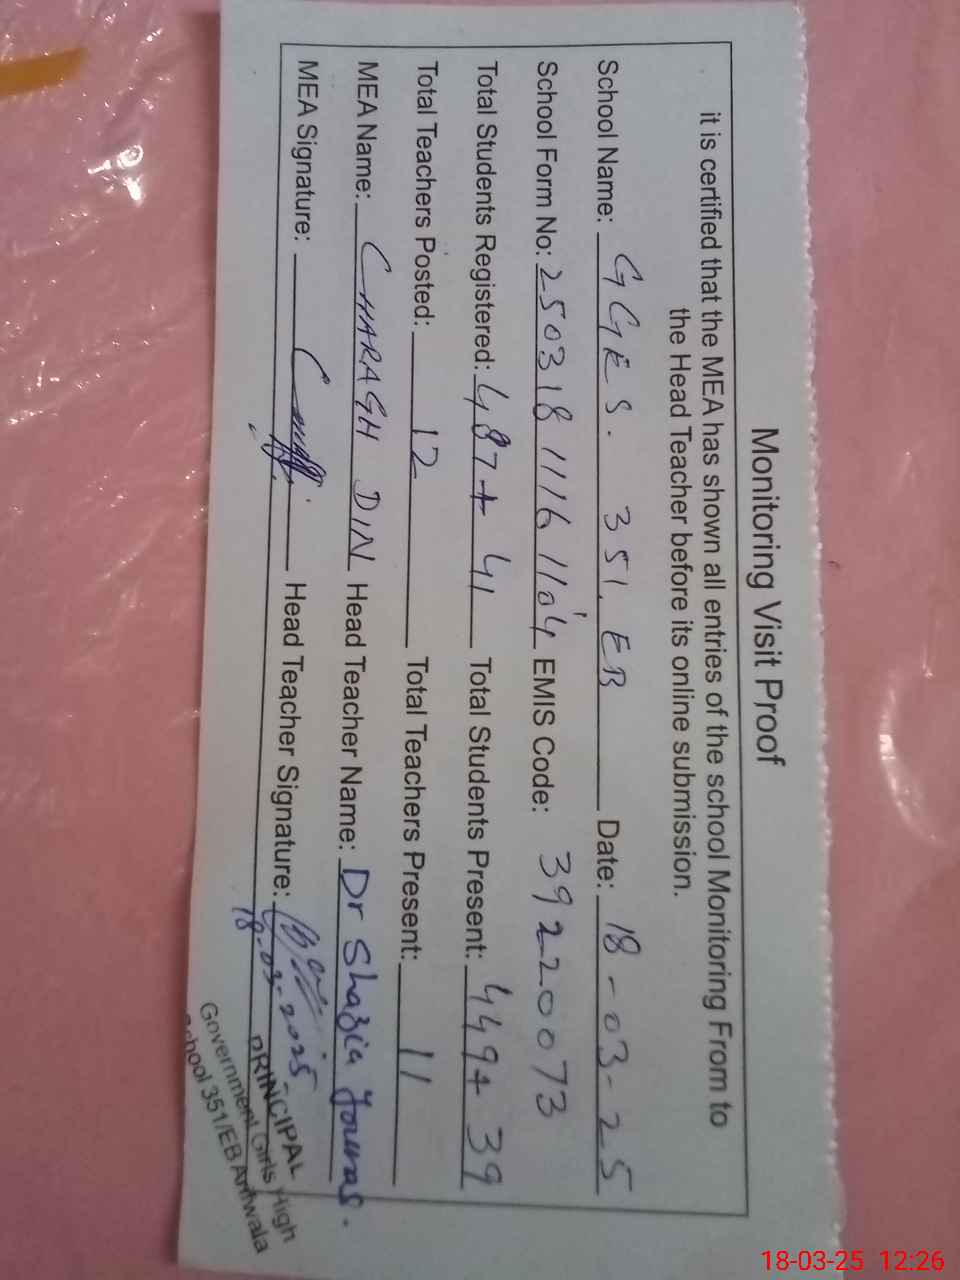 Monitoring Visit Proof
it is certified that the MEA has shown all entries of the school Monitoring From to
the Head Teacher before its online submission.
School Name: GGES. 351.EB Date: 18-03-25
School Form No: 250318 1116 1104 EMIS Code: 39220073
Total Students Registered: 487+41 Total Students Present: 449+39
Total Teachers Posted: 12 Total Teachers Present: 11
MEA Name: CHARAGH DIN Head Teacher Name: Dr Shazia Younas.
MEA Signature: Head Teacher Signature:
18.03.2025
PRINCIPAL
Government Girls High
School 351/EB Arifwala
18-03-25 12:26